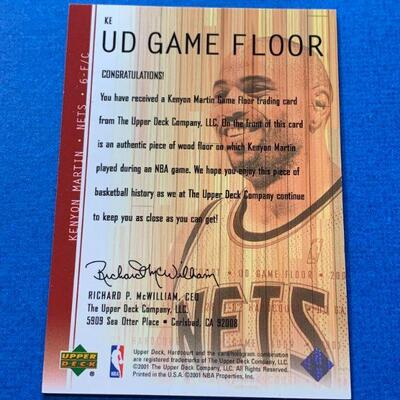 KE
UD GAME FLOOR
KENYON MARTIN • NETS • 6-F/C
CONGRATULATIONS!
You have received a Kenyon Martin Game Floor trading card
from The Upper Deck Company, LLC. On the front of this card
is an authentic piece of wood floor on which Kenyon Martin
played during an NBA game. We hope you enjoy this piece of
basketball history as we at The Upper Deck Company continue
to keep you as close as you can get!
Richard P. McWilliam
RICHARD P. McWILLIAM, CEO
The Upper Deck Company, LLC.
5909 Sea Otter Place • Carlsbad, CA 92008
UD GAME FLOOR
NETS
UPPER DECK ®
NBA
Upper Deck, Hardcourt and the card/hologram combination
are registered trademarks of The Upper Deck Company, LLC.
©2001 The Upper Deck Company, LLC. All Rights Reserved.
Printed in the U.S.A. ©2001 NBA Properties, Inc.